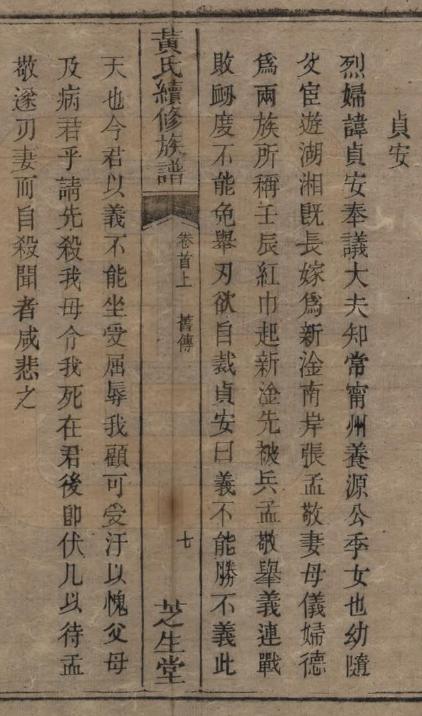 貞安
烈婦諱貞安奉議大夫知常甯州養源公季女也幼隨
父宦遊湖湘旣長嫁爲新淦南岸張孟敬妻母儀婦德
爲兩族所稱壬辰紅巾起新淦先被兵孟敬舉義連戰
敗衂度不能免舉刃欲自裁貞安曰義不能勝不義此
黃氏續修族譜
卷首上
舊傳
七
芝生堂
天也今君以義不能坐受屈辱我顧可受汙以愧父母
及病君乎請先殺我毋令我死在君後卽伏几以待孟
敬遂刃妻而自殺聞者咸悲之